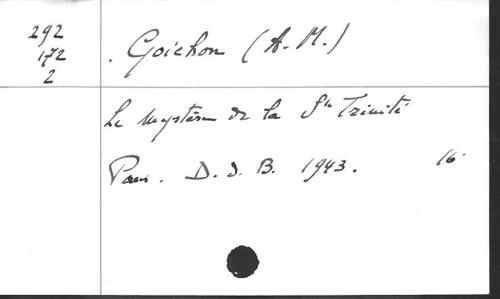 292
172
2
. Goichon (A.-M.)
Le Mystère de la Ste Trinité
Paris. D.d.B. 1943. 16°